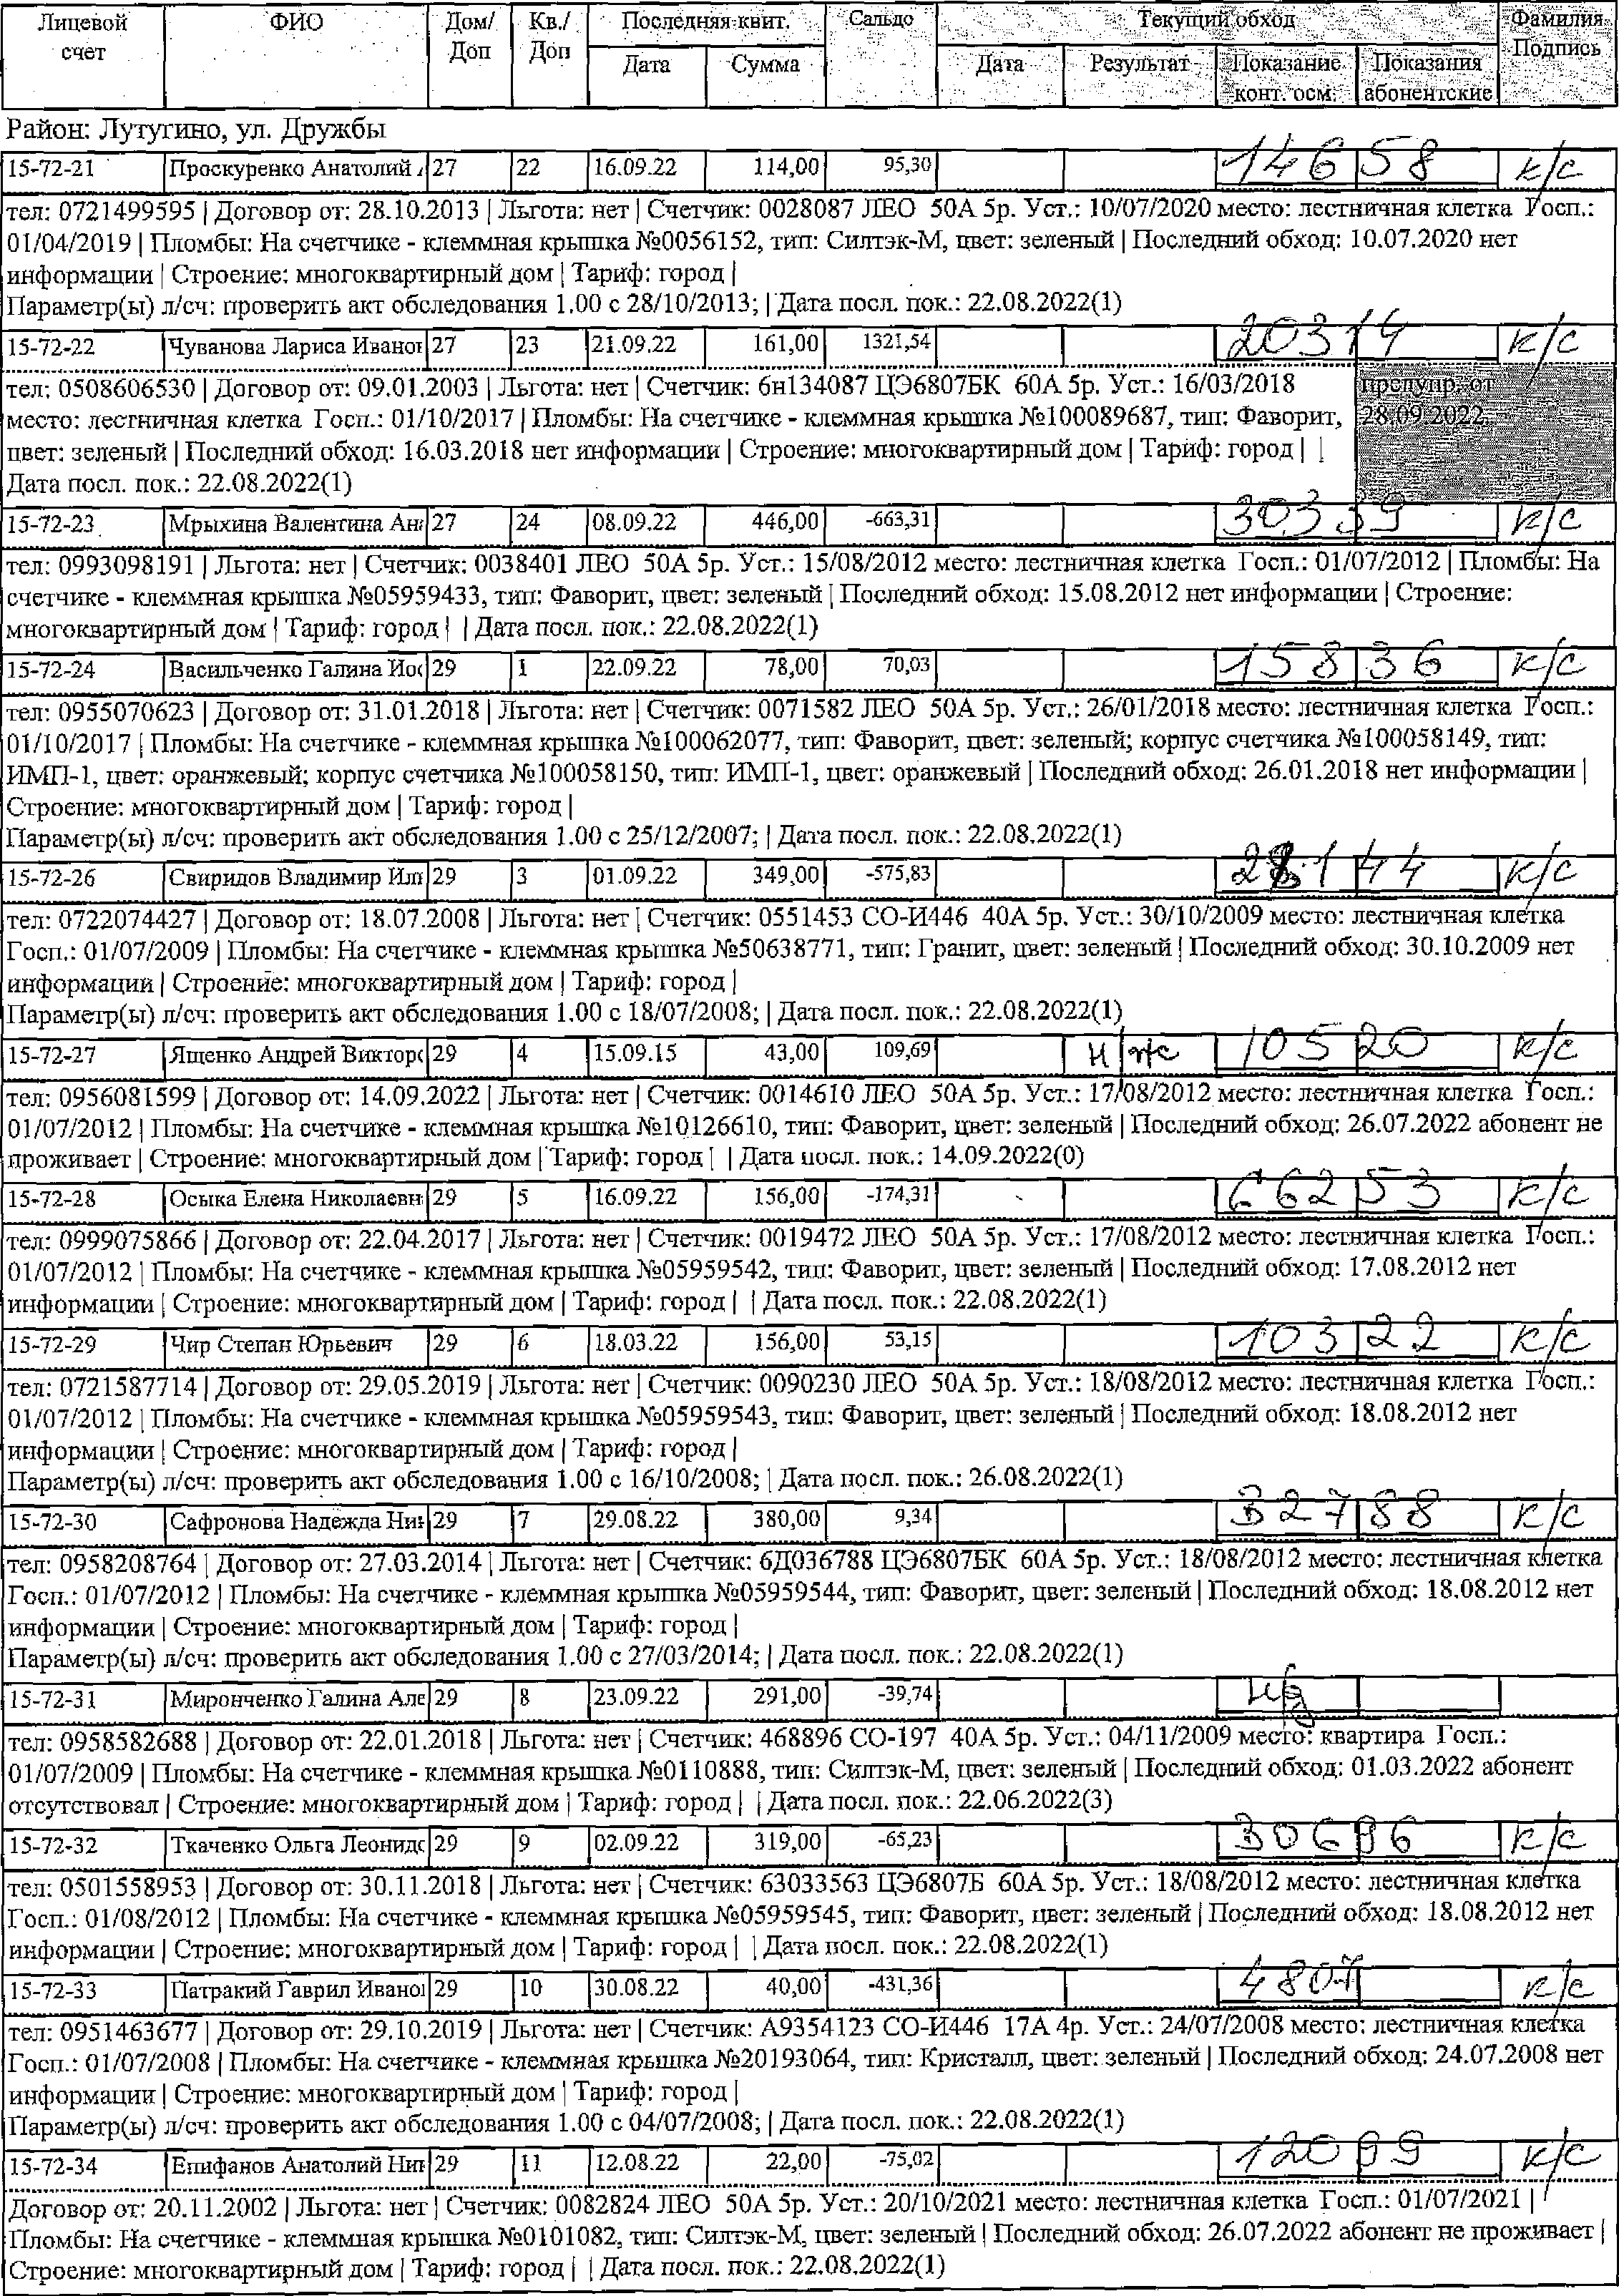 Лицевой счет ФИО Дом/ Доп Кв./ Доп Последняя квит. Сальдо Текущий обход Фамилия Подпись
Дата Сумма Дата Результат Показание конт. осм. Показания абонентские
Район: Лутугино, ул. Дружбы
15-72-21 Проскуренко Анатолий 27 22 16.09.22 114,00 95,30 14658 к/с
тел: 0721499595 | Договор от: 28.10.2013 | Льгота: нет | Счетчик: 0028087 ЛЕО 50А 5р. Уст.: 10/07/2020 место: лестничная клетка Госп.:
01/04/2019 | Пломбы: На счетчике - клеммная крышка №0056152, тип: Силтэк-М, цвет: зеленый | Последний обход: 10.07.2020 нет
информации | Строение: многоквартирный дом | Тариф: город |
Параметр(ы) л/сч: проверить акт обследования 1.00 с 28/10/2013; | Дата посл. пок.: 22.08.2022(1)
15-72-22 Чуванова Лариса Иванов 27 23 21.09.22 161,00 1321,54 20314 к/с
тел: 0508606530 | Договор от: 09.01.2003 | Льгота: нет | Счетчик: 6н134087 ЦЭ6807БК 60А 5р. Уст.: 16/03/2018 предупр. от
место: лестничная клетка Госп.: 01/10/2017 | Пломбы: На счетчике - клеммная крышка №100089687, тип: Фаворит, 28.09.2022
цвет: зеленый | Последний обход: 16.03.2018 нет информации | Строение: многоквартирный дом | Тариф: город | |
Дата посл. пок.: 22.08.2022(1)
15-72-23 Мрыхина Валентина Ана 27 24 08.09.22 446,00 -663,31 30339 к/с
тел: 0993098191 | Льгота: нет | Счетчик: 0038401 ЛЕО 50А 5р. Уст.: 15/08/2012 место: лестничная клетка Госп.: 01/07/2012 | Пломбы: На
счетчике - клеммная крышка №05959433, тип: Фаворит, цвет: зеленый | Последний обход: 15.08.2012 нет информации | Строение:
многоквартирный дом | Тариф: город | | Дата посл. пок.: 22.08.2022(1)
15-72-24 Васильченко Галина Иос 29 1 22.09.22 78,00 70,03 15836 к/с
тел: 0955070623 | Договор от: 31.01.2018 | Льгота: нет | Счетчик: 0071582 ЛЕО 50А 5р. Уст.: 26/01/2018 место: лестничная клетка Госп.:
01/10/2017 | Пломбы: На счетчике - клеммная крышка №100062077, тип: Фаворит, цвет: зеленый; корпус счетчика №100058149, тип:
ИМП-1, цвет: оранжевый; корпус счетчика №100058150, тип: ИМП-1, цвет: оранжевый | Последний обход: 26.01.2018 нет информации |
Строение: многоквартирный дом | Тариф: город |
Параметр(ы) л/сч: проверить акт обследования 1.00 с 25/12/2007; | Дата посл. пок.: 22.08.2022(1)
15-72-26 Свиридов Владимир Ил 29 3 01.09.22 349,00 -575,83 28144 к/с
тел: 0722074427 | Договор от: 18.07.2008 | Льгота: нет | Счетчик: 0551453 СО-И446 40А 5р. Уст.: 30/10/2009 место: лестничная клетка
Госп.: 01/07/2009 | Пломбы: На счетчике - клеммная крышка №50638771, тип: Гранит, цвет: зеленый | Последний обход: 30.10.2009 нет
информации | Строение: многоквартирный дом | Тариф: город |
Параметр(ы) л/сч: проверить акт обследования 1.00 с 18/07/2008; | Дата посл. пок.: 22.08.2022(1)
15-72-27 Ященко Андрей Викторо 29 4 15.09.15 43,00 109,69 н/ж 10520 к/с
тел: 0956081599 | Договор от: 14.09.2022 | Льгота: нет | Счетчик: 0014610 ЛЕО 50А 5р. Уст.: 17/08/2012 место: лестничная клетка Госп.:
01/07/2012 | Пломбы: На счетчике - клеммная крышка №10126610, тип: Фаворит, цвет: зеленый | Последний обход: 26.07.2022 абонент не
проживает | Строение: многоквартирный дом | Тариф: город | | Дата посл. пок.: 14.09.2022(0)
15-72-28 Осыка Елена Николаевн 29 5 16.09.22 156,00 -174,31 66253 к/с
тел: 0999075866 | Договор от: 22.04.2017 | Льгота: нет | Счетчик: 0019472 ЛЕО 50А 5р. Уст.: 17/08/2012 место: лестничная клетка Госп.:
01/07/2012 | Пломбы: На счетчике - клеммная крышка №05959542, тип: Фаворит, цвет: зеленый | Последний обход: 17.08.2012 нет
информации | Строение: многоквартирный дом | Тариф: город | | Дата посл. пок.: 22.08.2022(1)
15-72-29 Чир Степан Юрьевич 29 6 18.03.22 156,00 53,15 10322 к/с
тел: 0721587714 | Договор от: 29.05.2019 | Льгота: нет | Счетчик: 0090230 ЛЕО 50А 5р. Уст.: 18/08/2012 место: лестничная клетка Госп.:
01/07/2012 | Пломбы: На счетчике - клеммная крышка №05959543, тип: Фаворит, цвет: зеленый | Последний обход: 18.08.2012 нет
информации | Строение: многоквартирный дом | Тариф: город |
Параметр(ы) л/сч: проверить акт обследования 1.00 с 16/10/2008; | Дата посл. пок.: 26.08.2022(1)
15-72-30 Сафронова Надежда Ник 29 7 29.08.22 380,00 9,34 32788 к/с
тел: 0958208764 | Договор от: 27.03.2014 | Льгота: нет | Счетчик: 6Д036788 ЦЭ6807БК 60А 5р. Уст.: 18/08/2012 место: лестничная клетка
Госп.: 01/07/2012 | Пломбы: На счетчике - клеммная крышка №05959544, тип: Фаворит, цвет: зеленый | Последний обход: 18.08.2012 нет
информации | Строение: многоквартирный дом | Тариф: город |
Параметр(ы) л/сч: проверить акт обследования 1.00 с 27/03/2014; | Дата посл. пок.: 22.08.2022(1)
15-72-31 Миронченко Галина Але 29 8 23.09.22 291,00 -39,74 н/д
тел: 0958582688 | Договор от: 22.01.2018 | Льгота: нет | Счетчик: 468896 СО-197 40А 5р. Уст.: 04/11/2009 место: квартира Госп.:
01/07/2009 | Пломбы: На счетчике - клеммная крышка №0110888, тип: Силтэк-М, цвет: зеленый | Последний обход: 01.03.2022 абонент
отсутствовал | Строение: многоквартирный дом | Тариф: город | | Дата посл. пок.: 22.06.2022(3)
15-72-32 Ткаченко Ольга Леонидо 29 9 02.09.22 319,00 -65,23 30696 к/с
тел: 0501558953 | Договор от: 30.11.2018 | Льгота: нет | Счетчик: 63033563 ЦЭ6807Б 60А 5р. Уст.: 18/08/2012 место: лестничная клетка
Госп.: 01/08/2012 | Пломбы: На счетчике - клеммная крышка №05959545, тип: Фаворит, цвет: зеленый | Последний обход: 18.08.2012 нет
информации | Строение: многоквартирный дом | Тариф: город | | Дата посл. пок.: 22.08.2022(1)
15-72-33 Патракий Гаврил Иванов 29 10 30.08.22 40,00 -431,36 4807 к/с
тел: 0951463677 | Договор от: 29.10.2019 | Льгота: нет | Счетчик: А9354123 СО-И446 17А 4р. Уст.: 24/07/2008 место: лестничная клетка
Госп.: 01/07/2008 | Пломбы: На счетчике - клеммная крышка №20193064, тип: Кристалл, цвет: зеленый | Последний обход: 24.07.2008 нет
информации | Строение: многоквартирный дом | Тариф: город |
Параметр(ы) л/сч: проверить акт обследования 1.00 с 04/07/2008; | Дата посл. пок.: 22.08.2022(1)
15-72-34 Епифанов Анатолий Ник 29 11 12.08.22 22,00 -75,02 12099 к/с
Договор от: 20.11.2002 | Льгота: нет | Счетчик: 0082824 ЛЕО 50А 5р. Уст.: 20/10/2021 место: лестничная клетка Госп.: 01/07/2021 |
Пломбы: На счетчике - клеммная крышка №0101082, тип: Силтэк-М, цвет: зеленый | Последний обход: 26.07.2022 абонент не проживает |
Строение: многоквартирный дом | Тариф: город | | Дата посл. пок.: 22.08.2022(1)